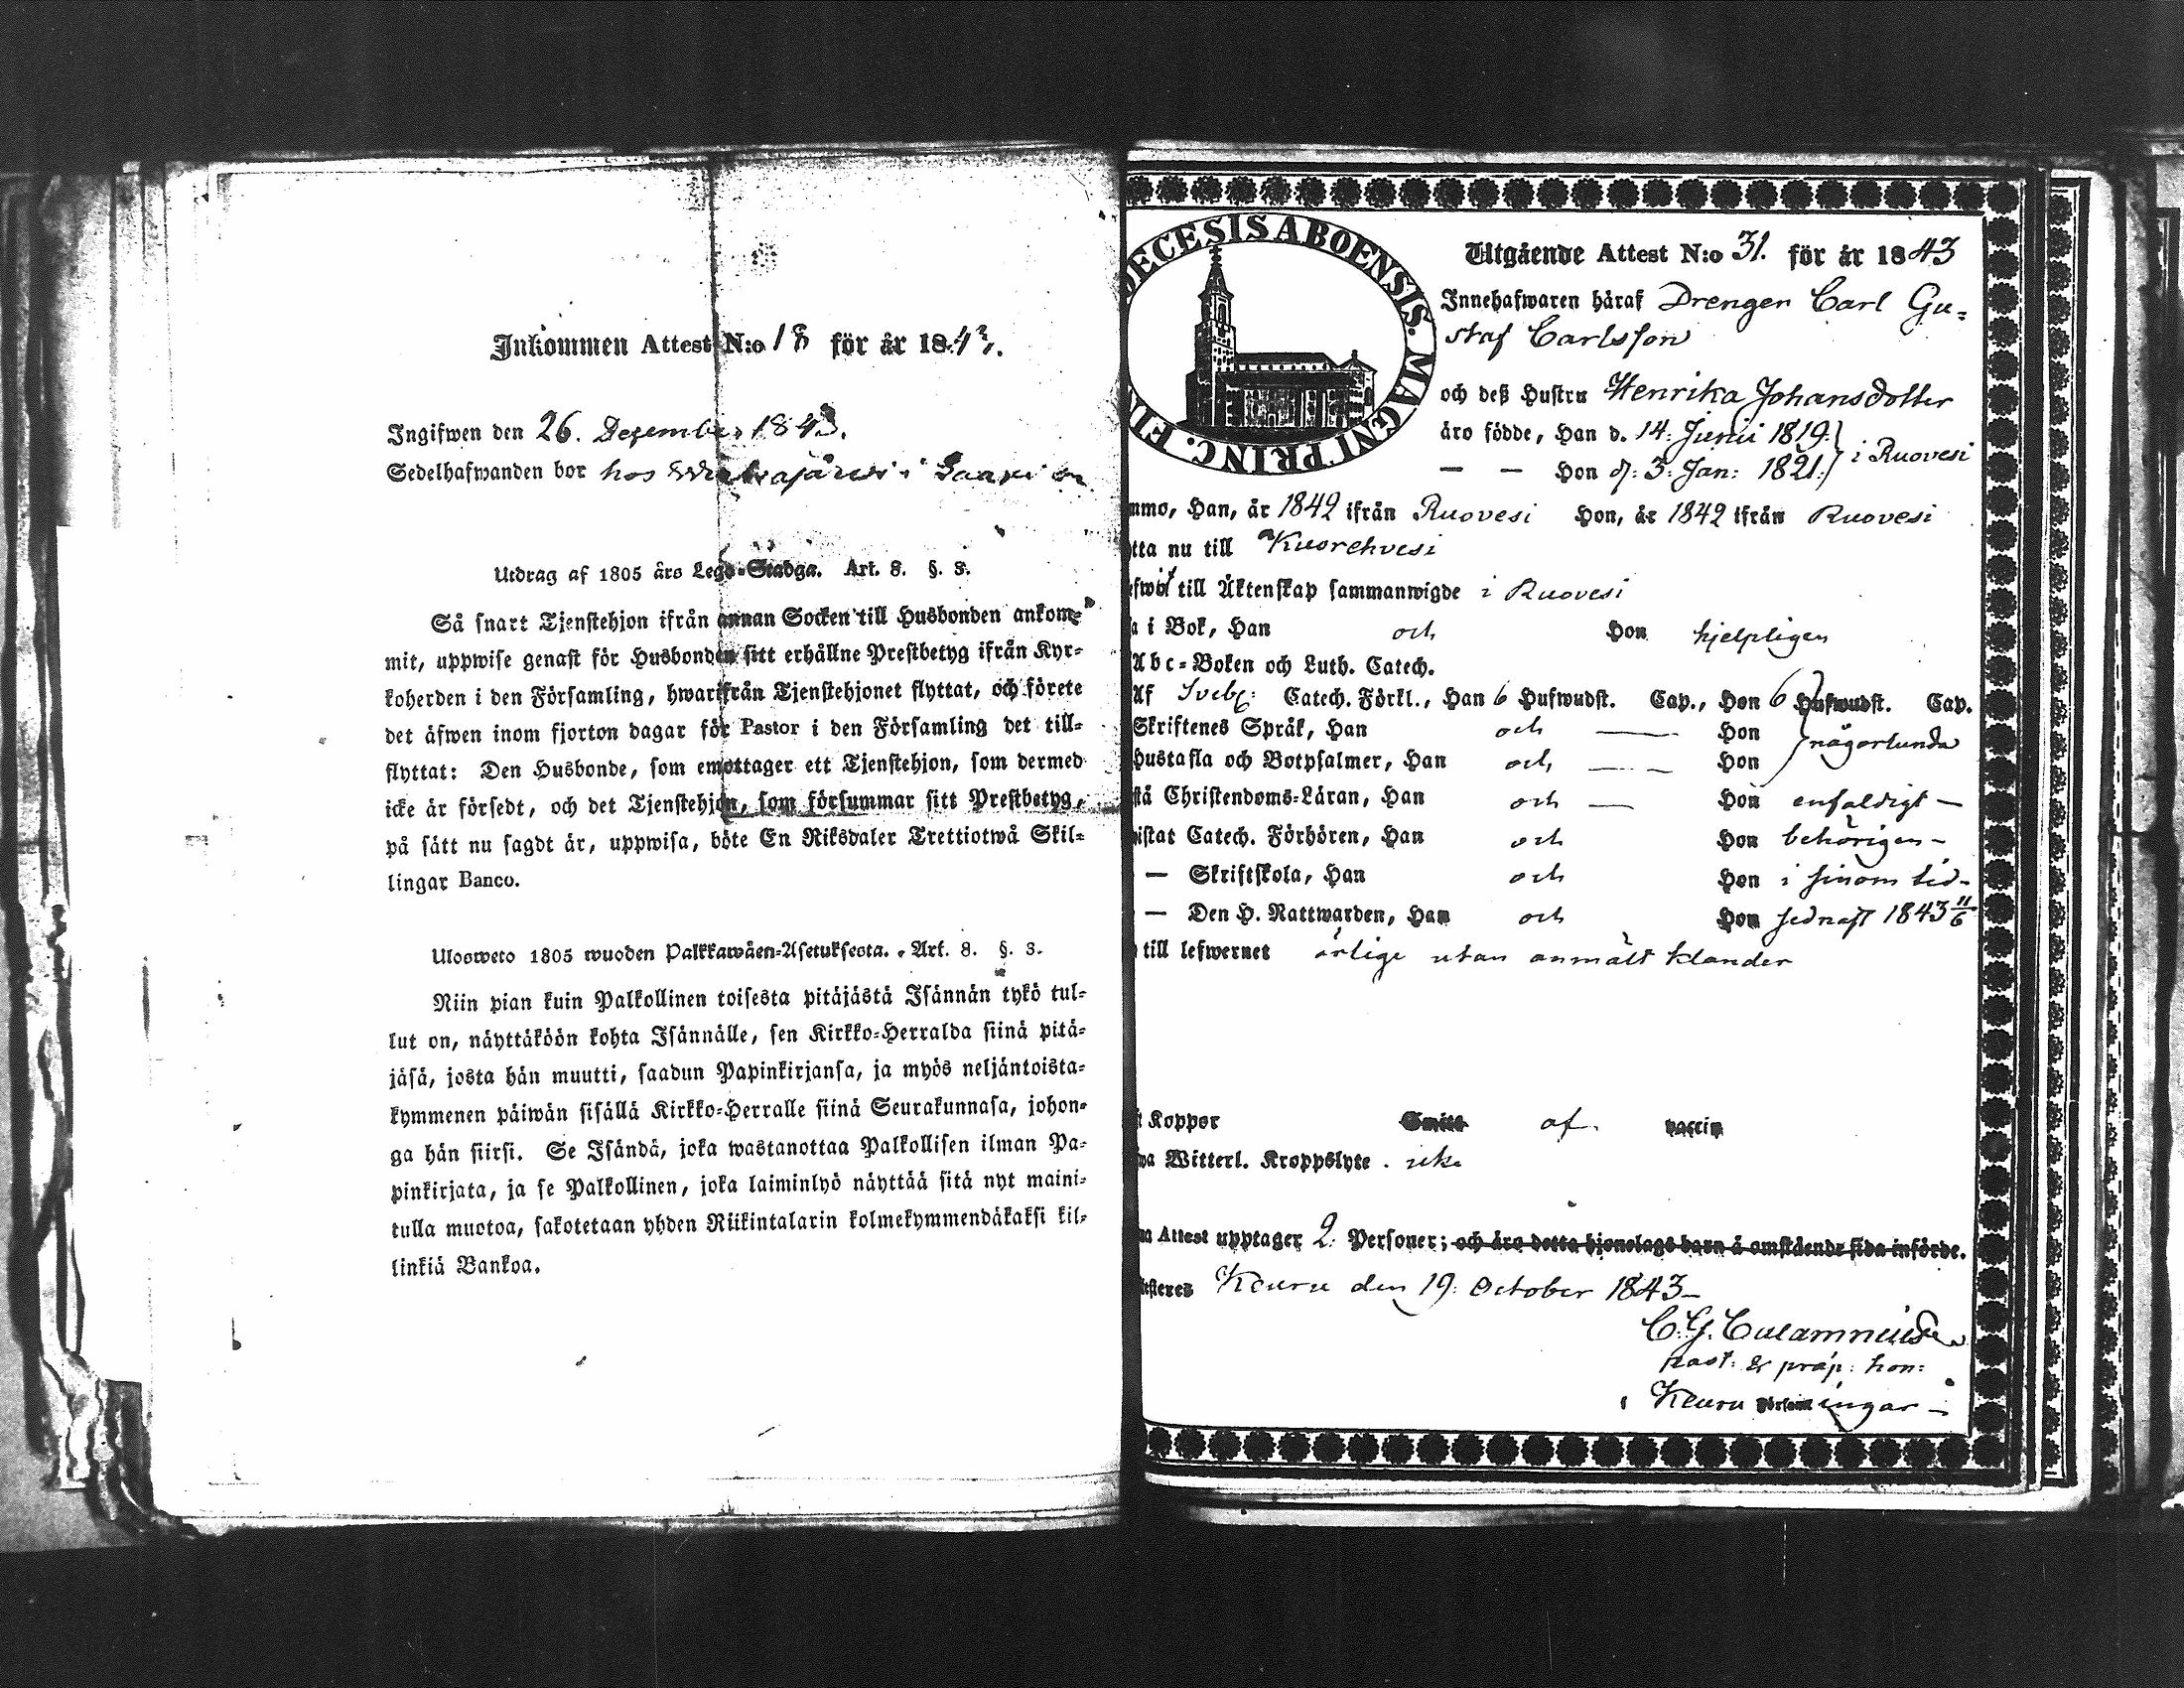 Inkommen Attest N:o 18 för år 1843.
Ingifwen den 26. Dezember 1843.
Sedelhafwanden bor hos i
Utdrag af 1805 års Lego-Stadga. Art. 8. §. 3.
Så snart Tjenstehjon ifrån annan Socken till Husbonden ankom-
mit, uppwise genast för Husbonden sitt erhållne Prestbetyg ifrån Kyr-
koherden i den Församling, hwarifrån Tjenstehjonet flyttat, och förete
det äfwen inom fjorton dagar för Pastor i den Församling det till-
flyttat: Den Husbonde, som emottager ett Tjenstehjon, som dermed
icke är försedt, och det Tjenstehjon, som försummar sitt Prestbetyg,
på sätt nu sagdt är, uppwisa, böte En Riksdaler Trettiotwå Skil-
lingar Banco.
Ulosweto 1805 wuoden Palkkawäen-Asetuksesta. Art. 8. §. 3.
Niin pian kuin Palkollinen toisesta pitäjästä Isännän tykö tul-
lut on, näyttäköön kohta Isännälle, sen Kirkko-Herralda siinä pitä-
jäsä, josta hän muutti, saadun Papinkirjansa, ja myös neljäntoista-
kymmenen päiwän sisällä Kirkko-Herralle siinä Seurakunnasa, johon-
ga hän siirsi. Se Isändä, joka wastanottaa Palkollisen ilman Pa-
pinkirjata, ja se Palkollinen, joka laiminlyö näyttää sitä nyt maini-
tulla muotoa, sakotetaan yhden Riikintalarin kolmekymmendäkaksi kil-
linkiä Bankoa.
DECESIS ABOENSIS. MAGNI PRINC. FIN
Utgående Attest N:o 31. för år 1843
Innehafwaren häraf Drengen Carl Gu-
staf Carlsson
och deß Hustru Henrika Johansdotter
äro födde, Han d. 14: Junii 1819:
— — Hon d: 3: Jan: 1821: i Ruovesi
mmo, Han, år 1842 ifrån Ruovesi Hon, år 1842 ifrån Ruovesi
tta nu till Kuorehvesi
till Äktenskap sammanwigde i Ruovesi
a i Bok, Han och Hon hjelpligen
Abc-Boken och Luth. Catech.
Af Sveb: Catech. Förkl., Han 6 Hufwudst. Cap., Hon 6 Hufwudst. Cap.
Skriftenes Språk, Han och — Hon
någorlunda
Hustafla och Botpsalmer, Han och — — Hon
stå Christendoms-Läran, Han och — Hon enfaldigt —
istat Catech. Förhören, Han och Hon behörigen —
— Skriftskola, Han och Hon i sinom tid —
— Den H. Nattwarden, Han och Hon sednast 1843 11/6
till lefwernet ärlige utan anmält klander
t Koppor Smitt af vaccin
wa Witterl. Kroppslyte . icke
n Attest upptager 2: Personer; och äro detta hjonelags barn å omstående sida införde.
steres Keuru den 19: October 1843 —
past: & präp: hon:
i Keuru Församlingar —